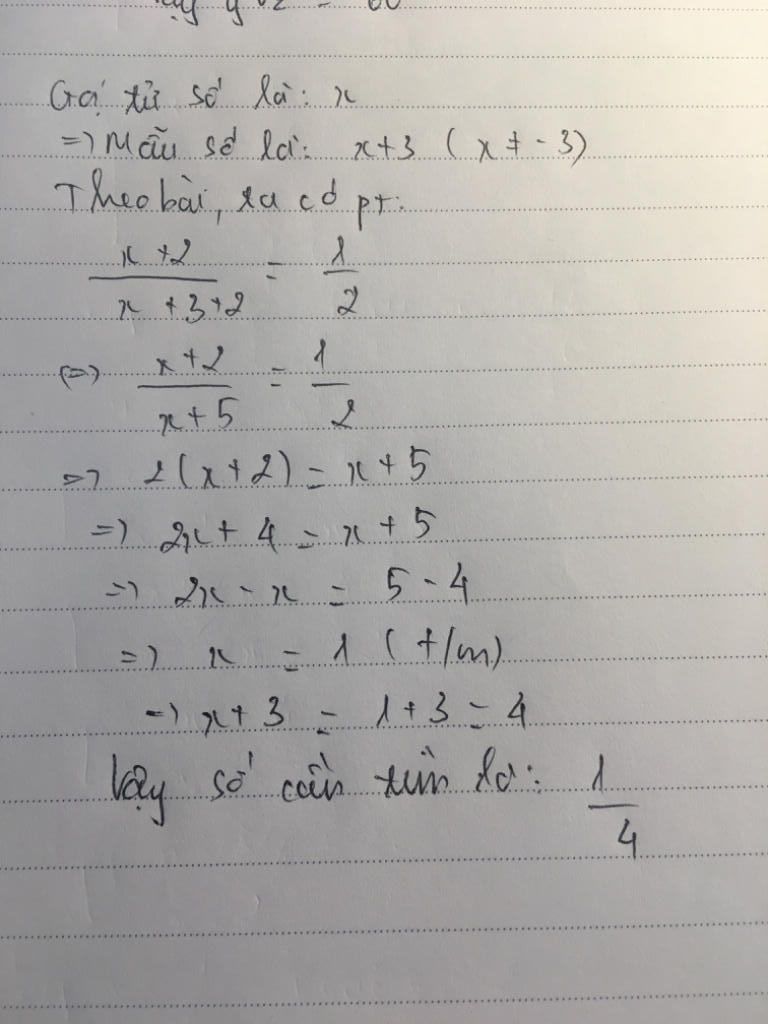 Gọi tử số là: x
=> Mẫu số là: x+3 (x ≠ -3)
Theo bài, ta có pt:
x+2 / x+3+2 = 1/2
<=> x+2 / x+5 = 1/2
=> 2(x+2) = x+5
=> 2x+4 = x+5
=> 2x-x = 5-4
=> x = 1 (t/m)
=> x+3 = 1+3 = 4
Vậy số cần tìm là: 1/4